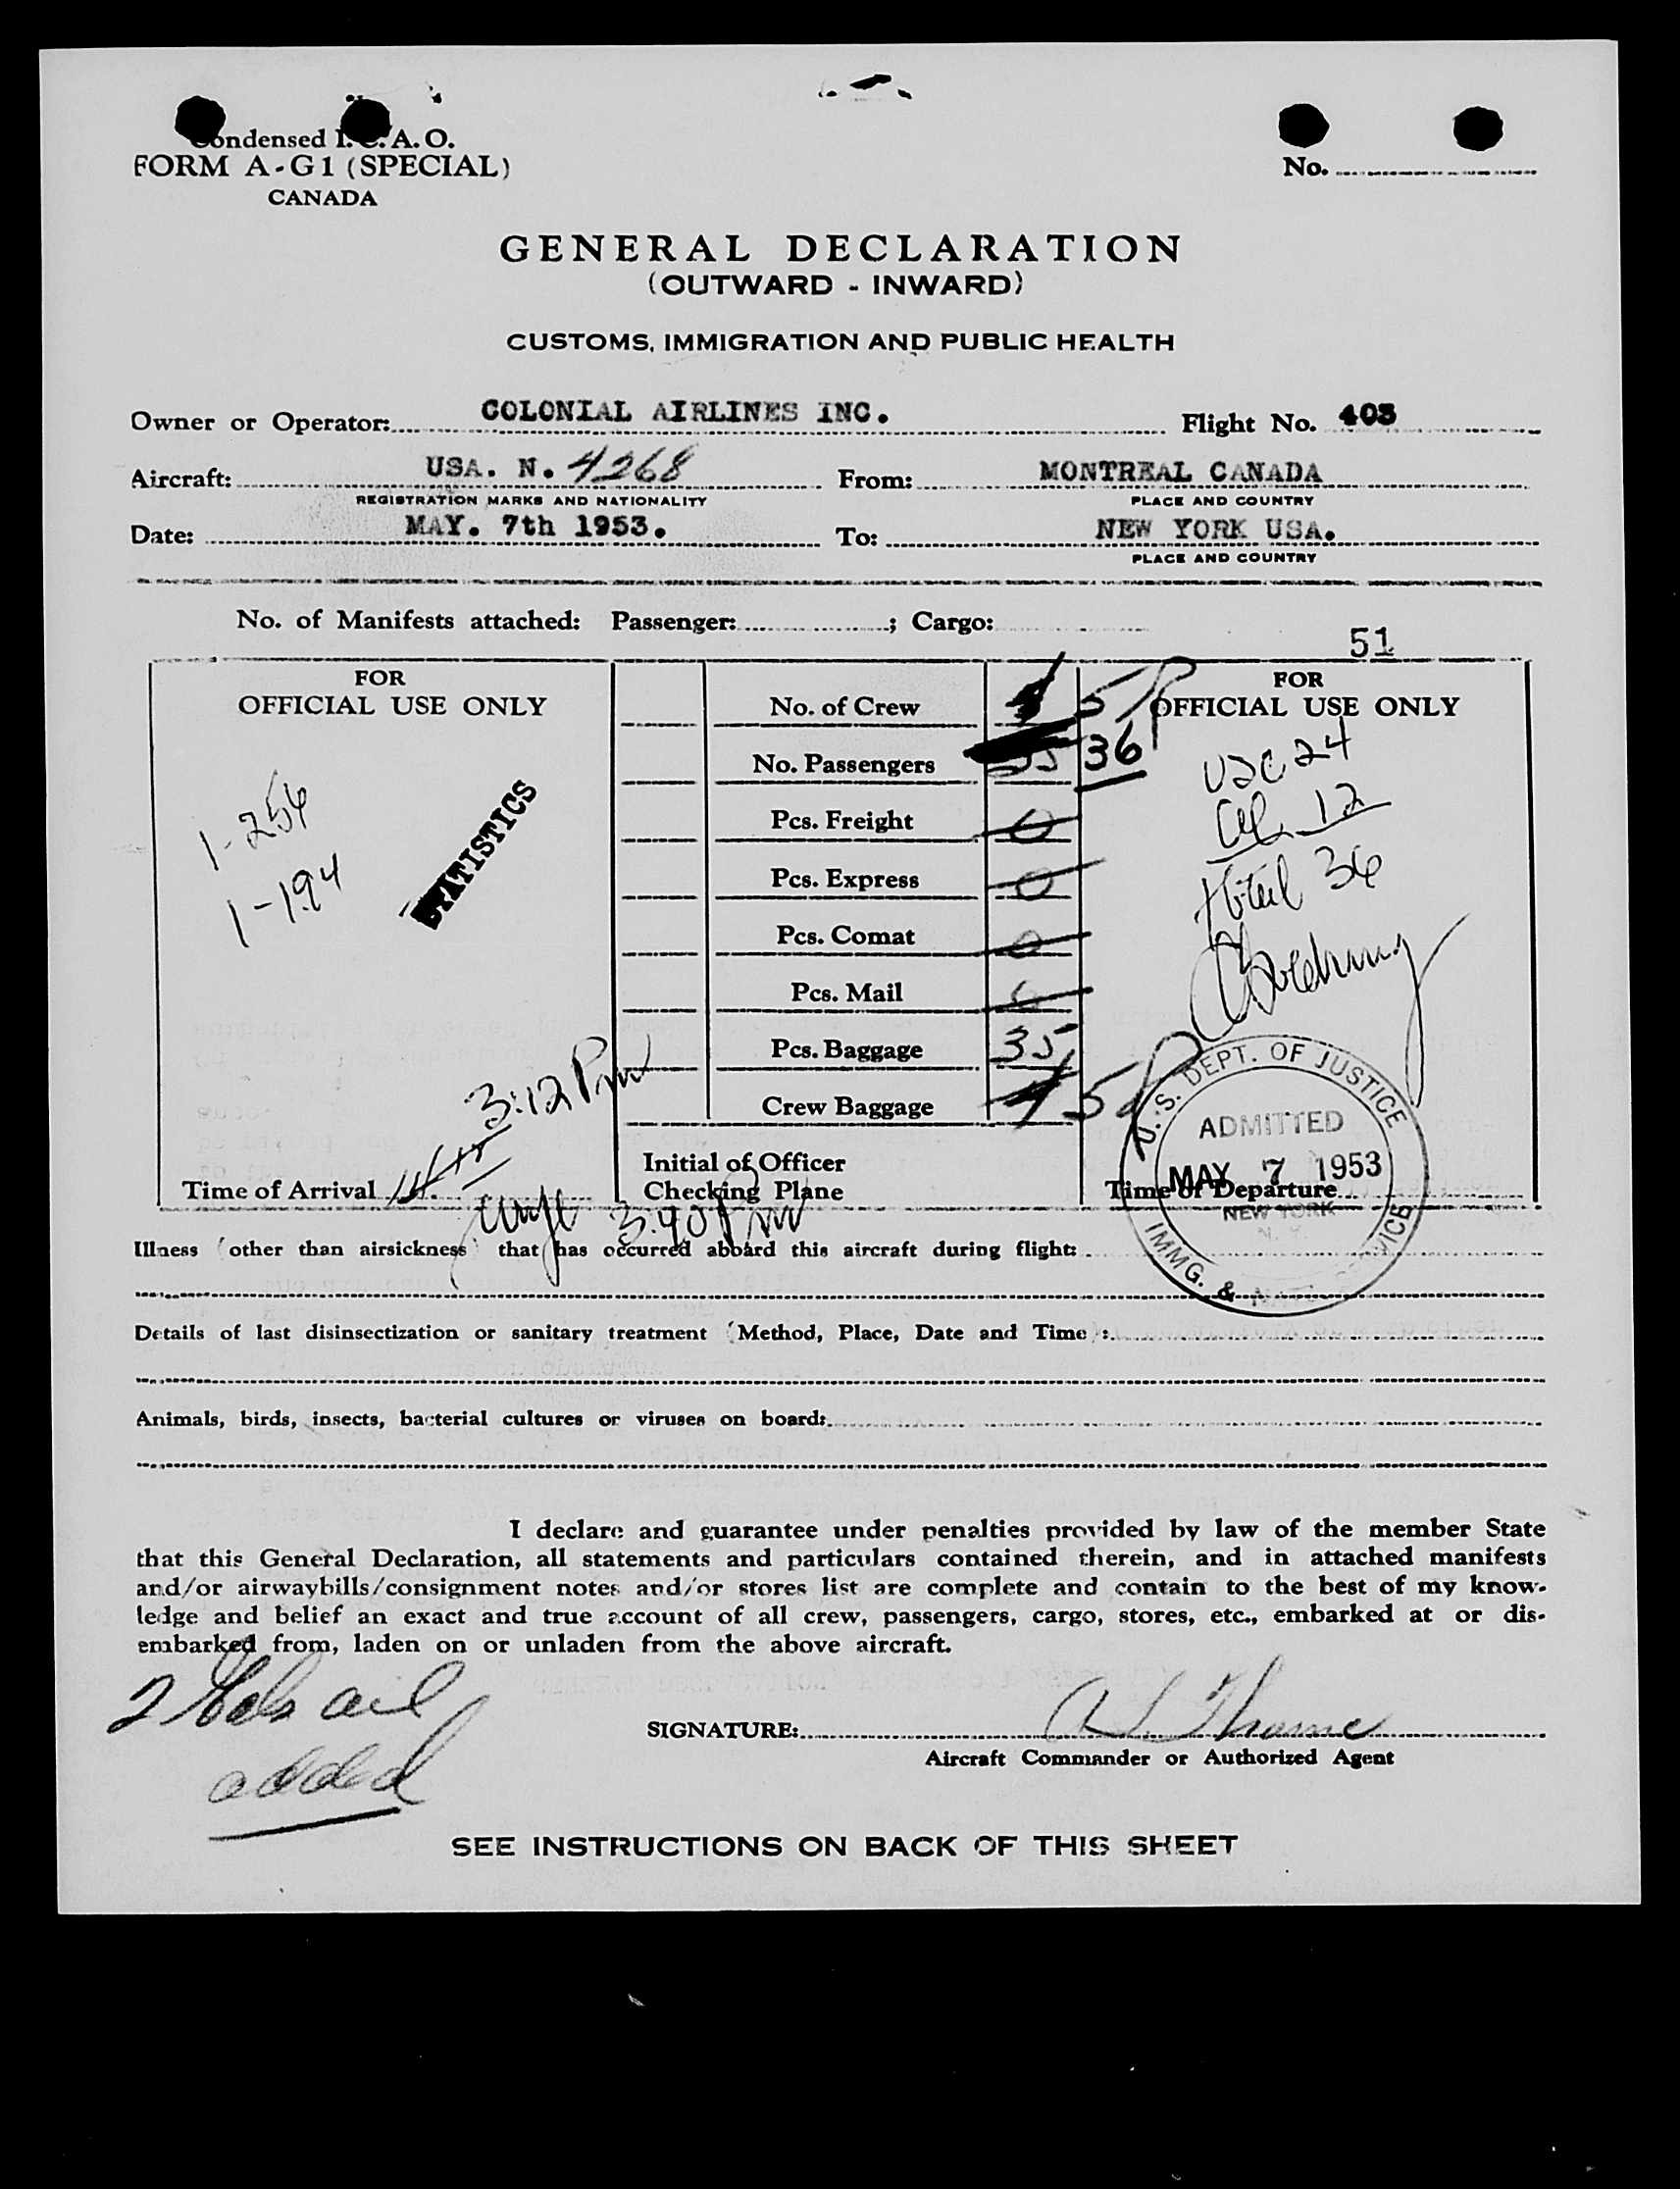 Condensed I.C.A.O.
FORM A-G1 (SPECIAL)
CANADA
No.
GENERAL DECLARATION
(OUTWARD - INWARD)
CUSTOMS, IMMIGRATION AND PUBLIC HEALTH
Owner or Operator: COLONIAL AIRLINES INC. Flight No. 403
Aircraft: USA. N. 4268 From: MONTREAL CANADA
REGISTRATION MARKS AND NATIONALITY PLACE AND COUNTRY
Date: MAY. 7th 1953. To: NEW YORK USA.
PLACE AND COUNTRY
No. of Manifests attached: Passenger: ; Cargo:
51
FOR
OFFICIAL USE ONLY
1-256
1-194
STATISTICS
3:12 PM
Time of Arrival
No. of Crew 5
No. Passengers 35 36
Pcs. Freight 0
Pcs. Express 0
Pcs. Comat 0
Pcs. Mail 0
Pcs. Baggage 35
Crew Baggage 4 5
Initial of Officer
Checking Plane
3:40 PM
FOR
OFFICIAL USE ONLY
USC 24
12
Total 36
U.S. DEPT. OF JUSTICE
ADMITTED
MAY 7 1953
NEW YORK
N.Y.
IMMG. & NATZ. SERVICE
Time of Departure
Illness (other than airsickness) that has occurred aboard this aircraft during flight:
Details of last disinsectization or sanitary treatment (Method, Place, Date and Time):
Animals, birds, insects, bacterial cultures or viruses on board:
I declare and guarantee under penalties provided by law of the member State
that this General Declaration, all statements and particulars contained therein, and in attached manifests
and/or airwaybills/consignment notes and/or stores list are complete and contain to the best of my know-
ledge and belief an exact and true account of all crew, passengers, cargo, stores, etc., embarked at or dis-
embarked from, laden on or unladen from the above aircraft.
2
added
SIGNATURE: A L Thorne
Aircraft Commander or Authorized Agent
SEE INSTRUCTIONS ON BACK OF THIS SHEET